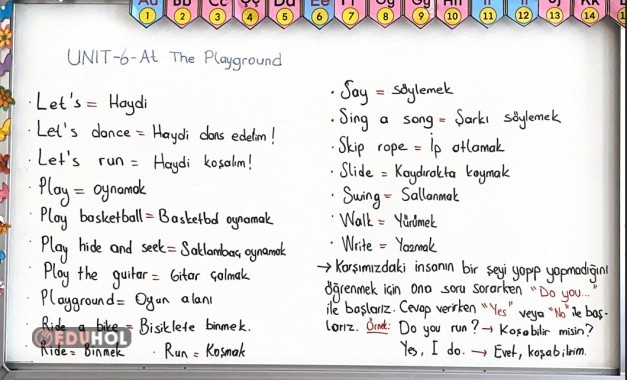 Aa Bb Cc Çç Dd Ee Ff Gg Ğğ Hh
1 2 3 4 5 6 7 8 9 10 11 12 13 14
UNIT-6-At The Playground
· Let's = Haydi
· Let's dance = Haydi dans edelim!
· Let's run = Haydi koşalım!
· Play = oynamak
· Play basketball = Basketbol oynamak
· Play hide and seek = Saklambaç oynamak
· Play the guitar = Gitar çalmak
· Playground = Oyun alanı
· Ride a bike = Bisiklete binmek.
· Ride = Binmek · Run = Koşmak
EDUHOL
· Say = söylemek
· Sing a song = Şarkı söylemek
· Skip rope = İp atlamak
· Slide = Kaydırakta kaymak
· Swing = Sallanmak
· Walk = Yürümek
· Write = Yazmak
→ Karşımızdaki insanın bir şeyi yapıp yapmadığını
öğrenmek için ona soru sorarken "Do you..."
ile başlarız. Cevap verirken "Yes" veya "No" ile baş-
larız. Örnek: Do you run? → Koşabilir misin?
Yes, I do. → Evet, koşabilirim.